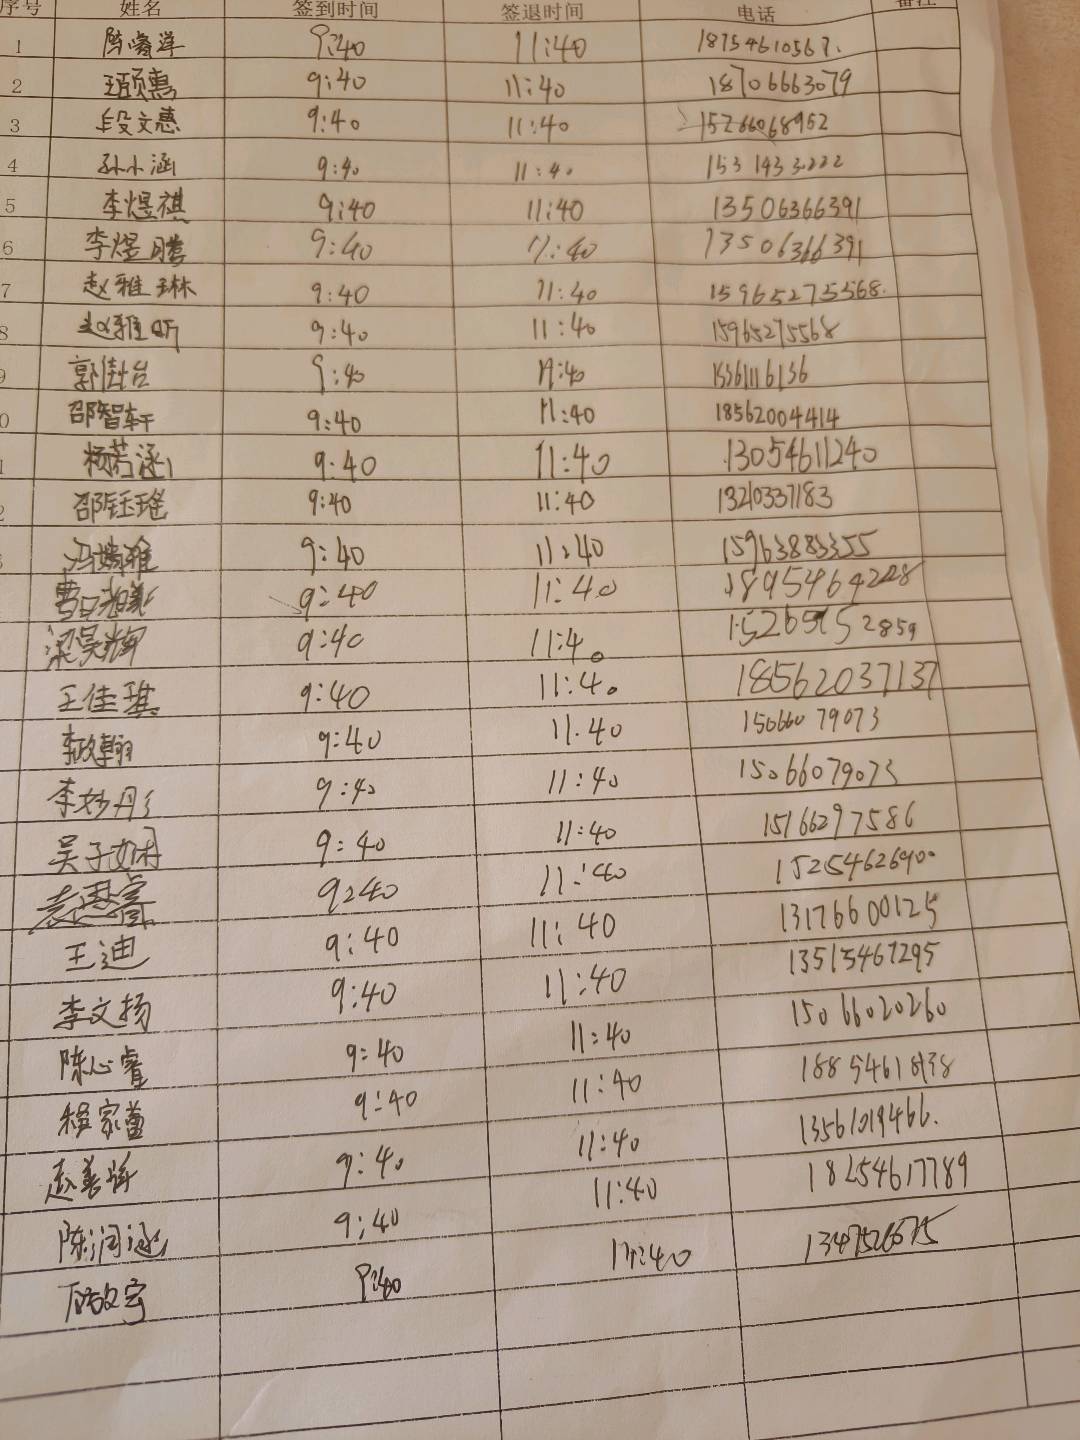 序号 姓名 签到时间 签退时间 电话 备注
1 陈睿洋 9:40 11:40 18754610567.
2 9:40 11:40 18706663079
3 段文惠 9:40 11:40 15266068952
4 孙小涵 9:40 11:40 
5 李煜祺 9:40 11:40 13506366391
6 李煜腾 9:40 11:40 13506366391
7 赵雅琳 9:40 11:40 15965275568.
8 赵雅昕 9:40 11:40 15965275568
9 9:40 11:40
0 邵智轩 9:40 11:40 18562004414
1 杨若涵 9:40 11:40 13054611240
2 邵钰瑶 9:40 11:40
冯瑞雅 9:40 11:40 15963883355
9:40 11:40 1895464228
梁昊辉 9:40 11:40
王佳琪 9:40 11:40 18562037137
李政翰 9:40 11:40 15066079073
李妙丹 9:40 11:40 15066079073
吴子如 9:40 11:40 15166297586
袁思睿 9:40 11:40 15254626900
王迪 9:40 11:40 13176600125
李文扬 9:40 11:40 13515467295
陈心睿 9:40 11:40 15066020260
程家蕾 9:40 11:40
赵善 9:40 11:40 13561019466.
陈润涵 9:40 11:40 18254617789
9:40 11:40